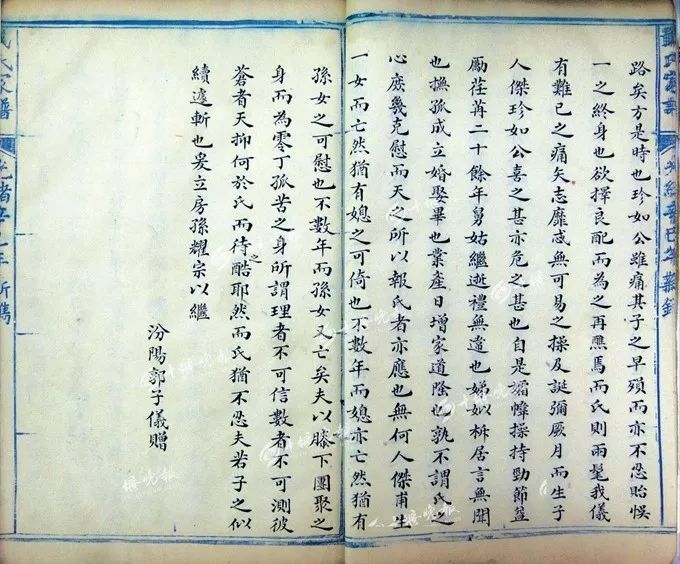 路矣方是時也珍如公雖痛其子之早殞而亦不忍貽悞
一之終身也欲擇良配而為之再醮焉而氏則兩髦我儀
有難已之痛矢志靡感無可易之操及誕彌厥月而生子
人傑珍如公喜之甚亦危之甚也自是孀幃操持勁節益
勵荏苒二十餘年舅姑繼逝禮無違也娣姒柝居言無閒
也撫孤成立婚娶畢也業產日增家道隆也孰不謂氏之
心庶幾克慰而天之所以報氏者亦應也無何人傑甫生
一女而亡然猶有媳之可倚也不數年而媳亦亡然猶有
孫女之可慰也不數年而孫女又亡矣夫以膝下團聚之
身而為零丁孤苦之身所謂理者不可信數者不可測彼
蒼者天抑何於氏而待之酷耶然而氏猶不忍夫若子之似
續遽斬也爰立房孫耀宗以繼
汾陽郭子儀贈
氏家譜
光緒年新鐫